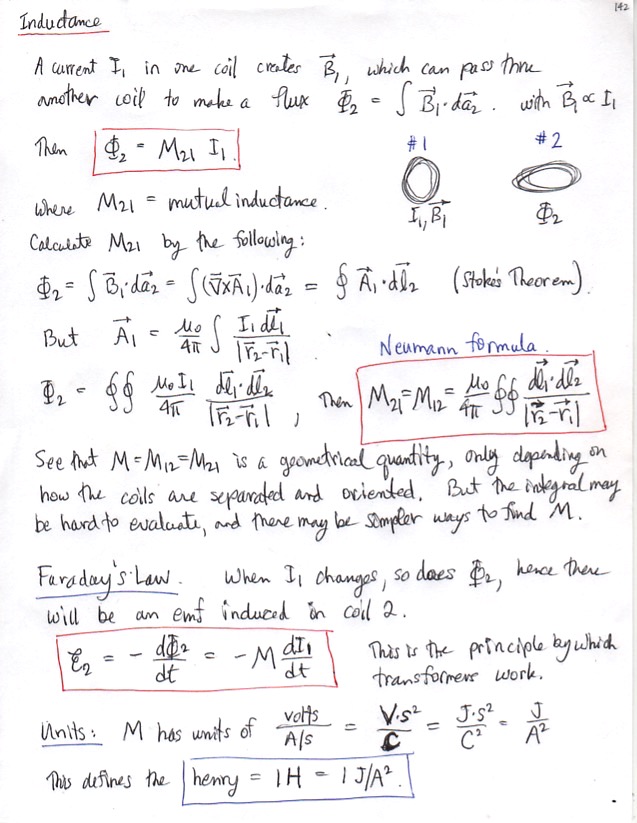 142
Inductance
A current I₁ in one coil creates B⃗₁, which can pass thru
another coil to make a flux Φ₂ = ∫ B⃗₁·da⃗₂. with B⃗₁ ∝ I₁
Then Φ₂ = M₂₁ I₁. #1 #2
where M₂₁ = mutual inductance. I₁, B⃗₁ Φ₂
Calculate M₂₁ by the following:
Φ₂ = ∫ B⃗₁·da⃗₂ = ∫(∇⃗×A⃗₁)·da⃗₂ = ∮ A⃗₁·dl⃗₂ (Stoke's Theorem).
But A⃗₁ = μ₀/4π ∫ I₁dl⃗₁/|r⃗₂-r⃗₁|. Neumann formula.
Φ₂ = ∮∮ μ₀I₁/4π dl⃗₁·dl⃗₂/|r⃗₂-r⃗₁|, Then M₂₁=M₁₂ = μ₀/4π ∮∮ dl⃗₁·dl⃗₂/|r⃗₂-r⃗₁|
See that M=M₁₂=M₂₁ is a geometrical quantity, only depending on
how the coils are separated and oriented. But the integral may
be hard to evaluate, and there may be simpler ways to find M.
Faraday's Law. When I₁ changes, so does Φ₂, hence there
will be an emf induced in coil 2.
ℰ₂ = - dΦ₂/dt = - M dI₁/dt This is the principle by which
transformers work.
Units: M has units of volts/A/s = V·s²/C = J·s²/C² = J/A²
This defines the henry = 1H = 1 J/A².